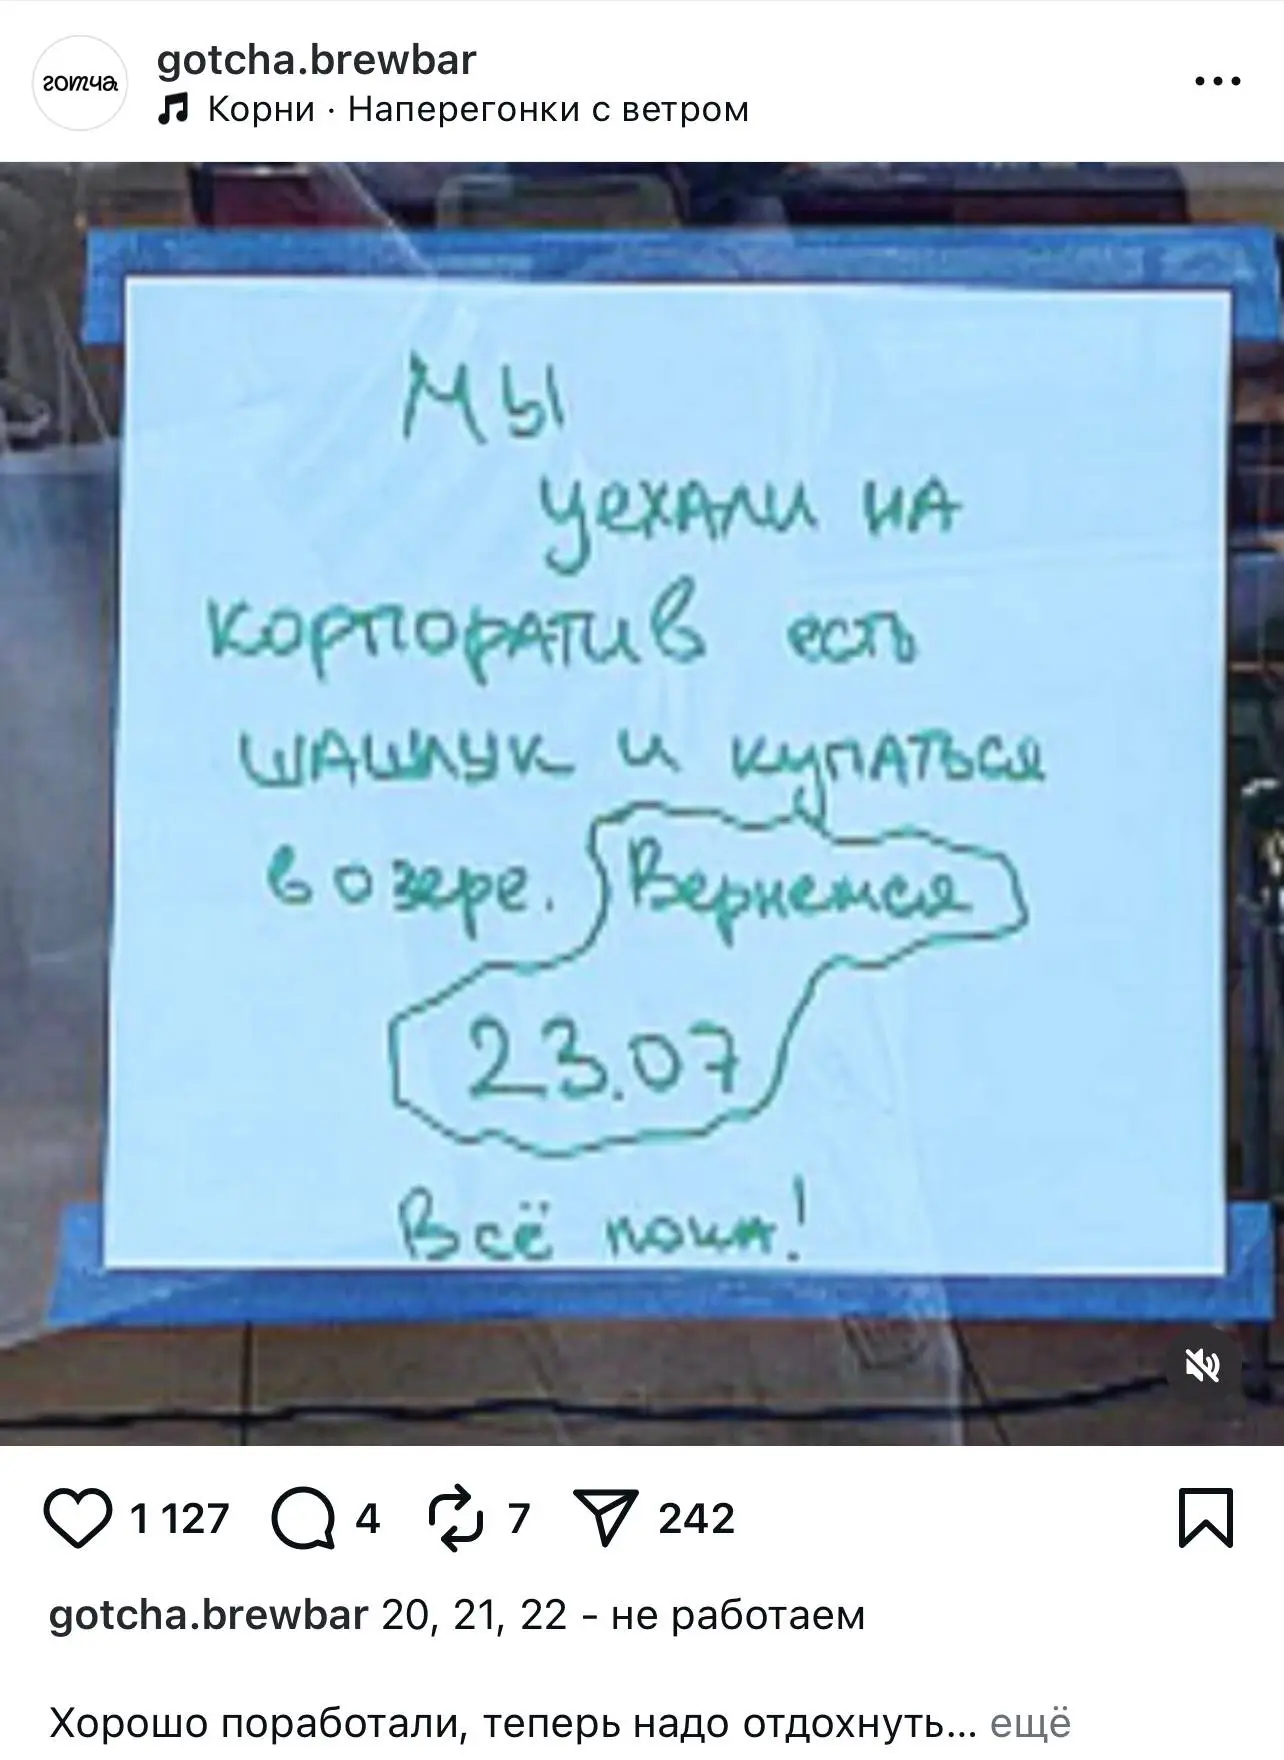 готча
gotcha.brewbar
Корни · Наперегонки с ветром
Мы
уехали на
корпоратив есть
шашлук и купаться
в озере. Вернемся
23.07
Всё пока!
1 127 4 7 242
gotcha.brewbar 20, 21, 22 - не работаем
Хорошо поработали, теперь надо отдохнуть... ещё